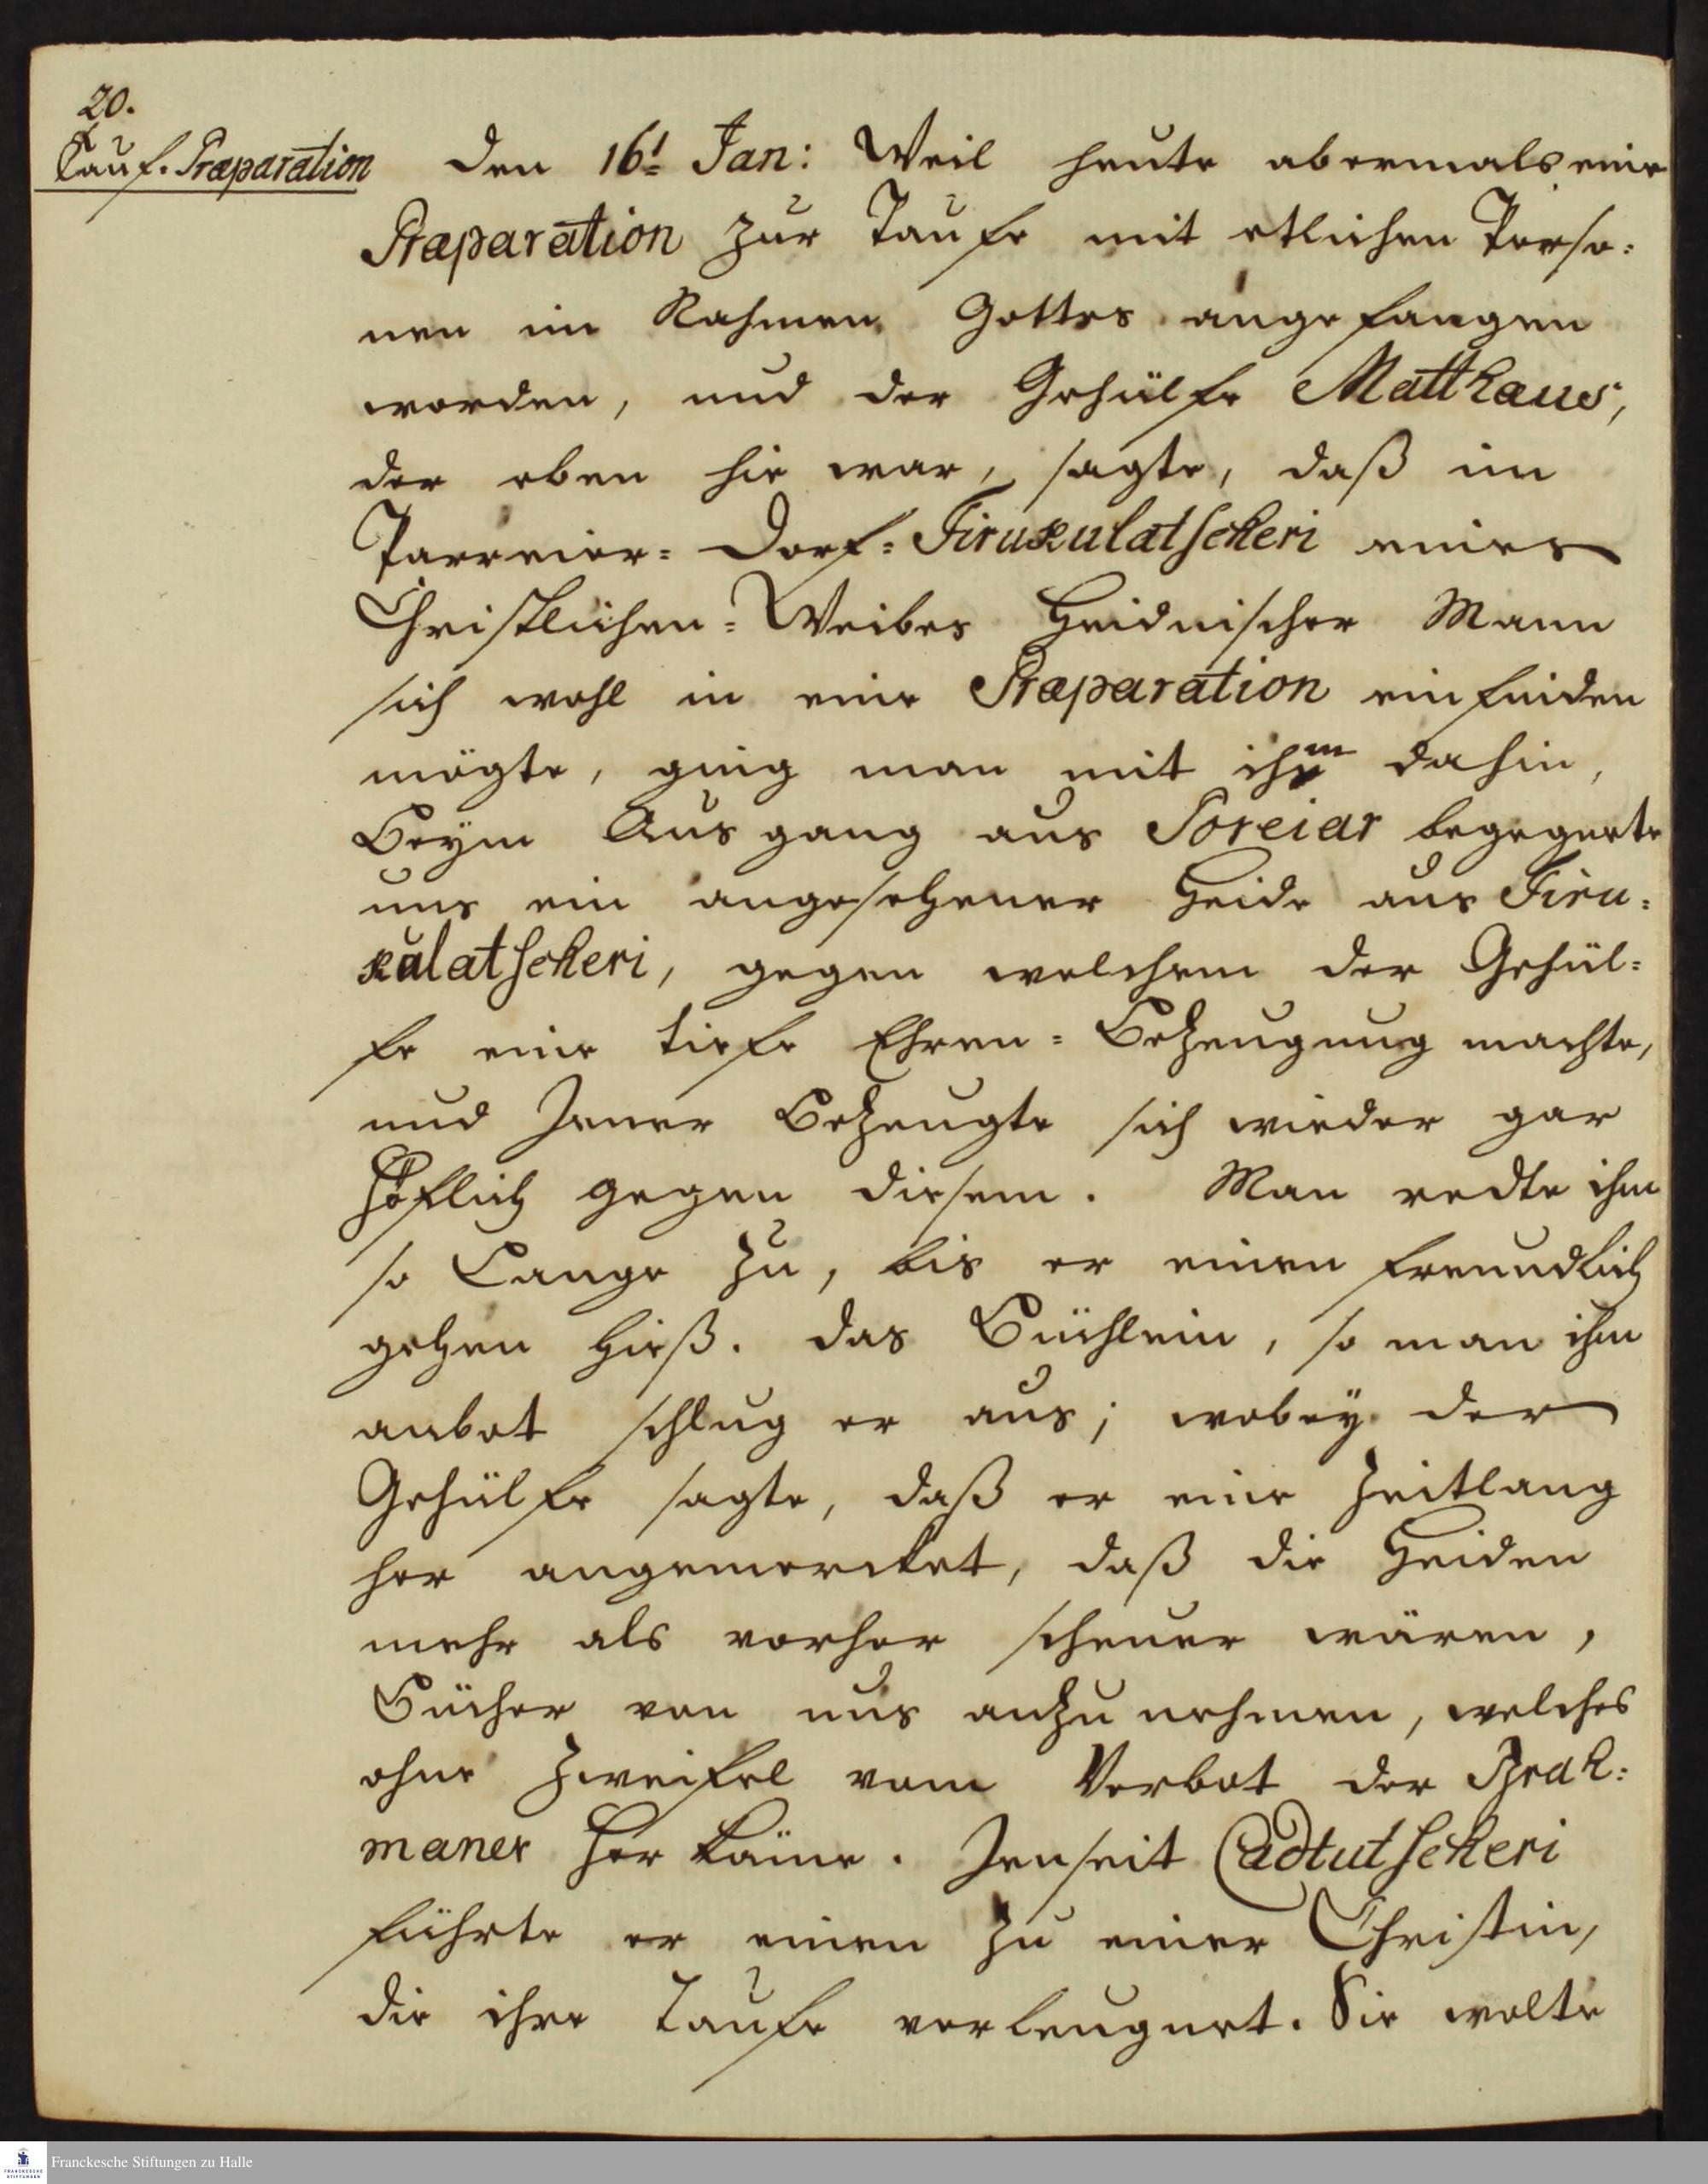 20.
Tauf-Præparation
Den 16t Jan: Weil heute abermals eine
Præparation zur Taufe mit etlichen Perso-
nen im Nahmen Gottes angefangen
worden, und der Gehülfe Matthæus,
der eben hie war, sagte, daß im
Parreier-Dorf-Tirukulatscheri eines
Christlichen-Weibes Heidnischer Mann
sich wohl in eine Præparation einfinden
mögte, ging man mit ihm dahin,
Beym Ausgang aus Poreiar begegnete
uns ein angesehener Heide aus Tiru-
kulatscheri, gegen welchem der Gehül-
fe eine tiefe Ehren-Bezeugung machte,
und Jener Bezeugte sich wieder gar
Höflich gegen diesem. Man redte ihm
so Lange zu, bis er einen freundlich
gehen hieß. Das Büchlein, so man ihm
anbot schlug er aus; wobey der
Gehülfe sagte, daß er eine Zeitlang
her angemercket, daß die Heiden
mehr als vorher scheuer wären,
Bücher von uns anzunehmen, welches
ohne Zweifel vom Verbot der Brah-
maner Her käme. Jenseit Cadtutscheri
führte er einen zu einer Christin,
die ihre Taufe verleugnet. Sie wolte
Franckesche Stiftungen zu Halle